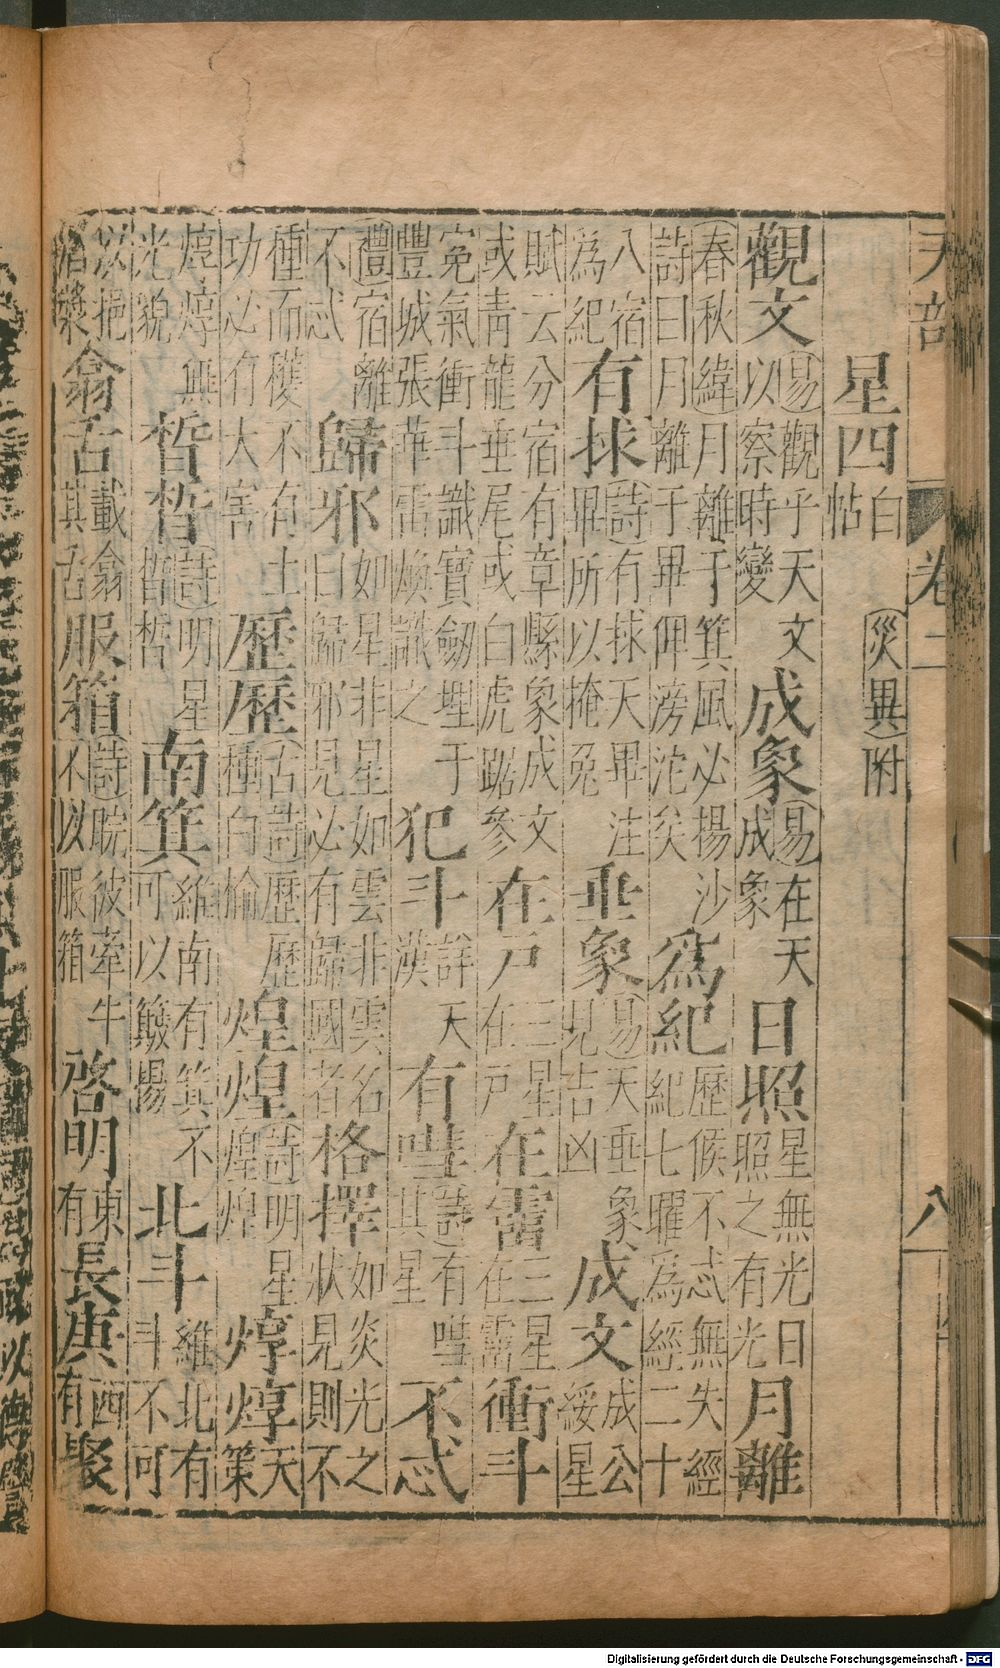 天部
卷二
八
星四
白
帖
災異附
觀文
易觀乎天文
以察時變
成象
易在天
成象
日照
星無光日
照之有光
月離
春秋緯月離于箕風必揚沙
詩曰月離于畢俾滂沱矣
爲紀
歷候不忒無失經
紀七曜爲經二十
八宿
爲紀
有捄
詩有捄天畢注
畢所以掩兔
垂象
易天垂象
見吉凶
成文
成公
綏星
賦云分宿有章縣象成文
或青龍垂尾或白虎踞參
在戶
三星
在戶
在霤
三星
在霤
衝斗
寃氣衝斗識寶劒埋于
豐城張華雷煥識之
犯斗
詳天
漢
有嘒
詩有嘒
其星
不忒
禮宿離
不忒
歸邪
如星非星如雲非雲名
曰歸邪見必有歸國者
格擇
如炎光之
狀見則不
種而穫不有土
功必有大害
歷歷
古詩歷歷
種白榆
煌煌
詩明星
煌煌
焞焞
天
策
焞焞無
光貌
晳晳
詩明星
晳晳
南箕
維南有箕不
可以簸揚
北斗
維北有
斗不可
以挹
酒漿
翕舌
載翕
其舌
服箱
詩睆彼牽牛
不以服箱
啓明
東
有
長庚
西
有
聚
Digitalisierung gefördert durch die Deutsche Forschungsgemeinschaft - DFG